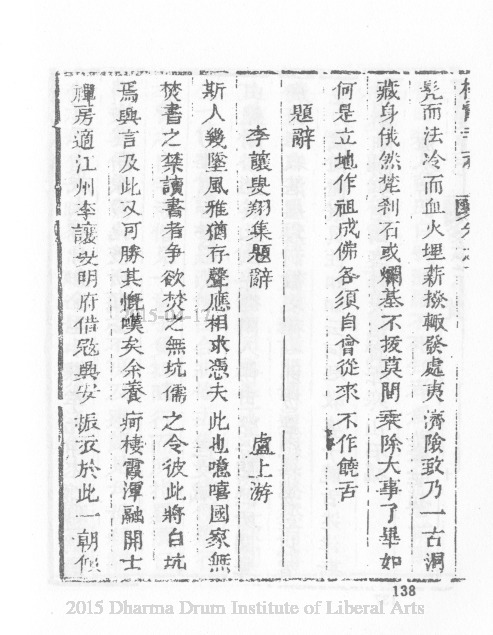 髡而法冷而血火埋薪撥輙發處夷濟險致乃一古洞
藏身俄然梵刹石或爛基不拔莫問乘除大事了畢如
何是立地作祖成佛各須自會從來不作饒舌
題辭
李讓輿翔集題辭 盧上游
斯人幾墜風雅猶存聲應相求憑夫此也噫嘻國家無
焚書之禁讀書者爭欲焚之無坑儒之令彼此將自坑
焉興言及此又可勝其慨嘆矣余養疴棲霞渾融開士
禪房適江州李讓明府借寇興安振衣於此一朝傾
138
2015 Dharma Drum Institute of Liberal Arts